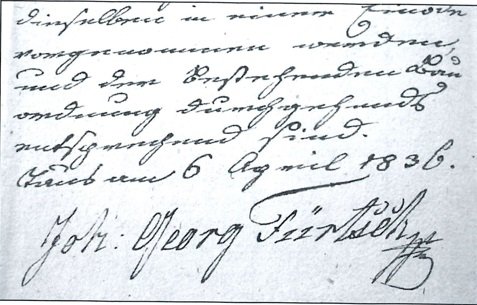 dieselben in einer Einöde
vorgenommen werden,
und der bestehenden Bau
ordnung durchgehends
entsprechend sind.
Taus am 6 April 1836.
Joh: Georg Fürtsch